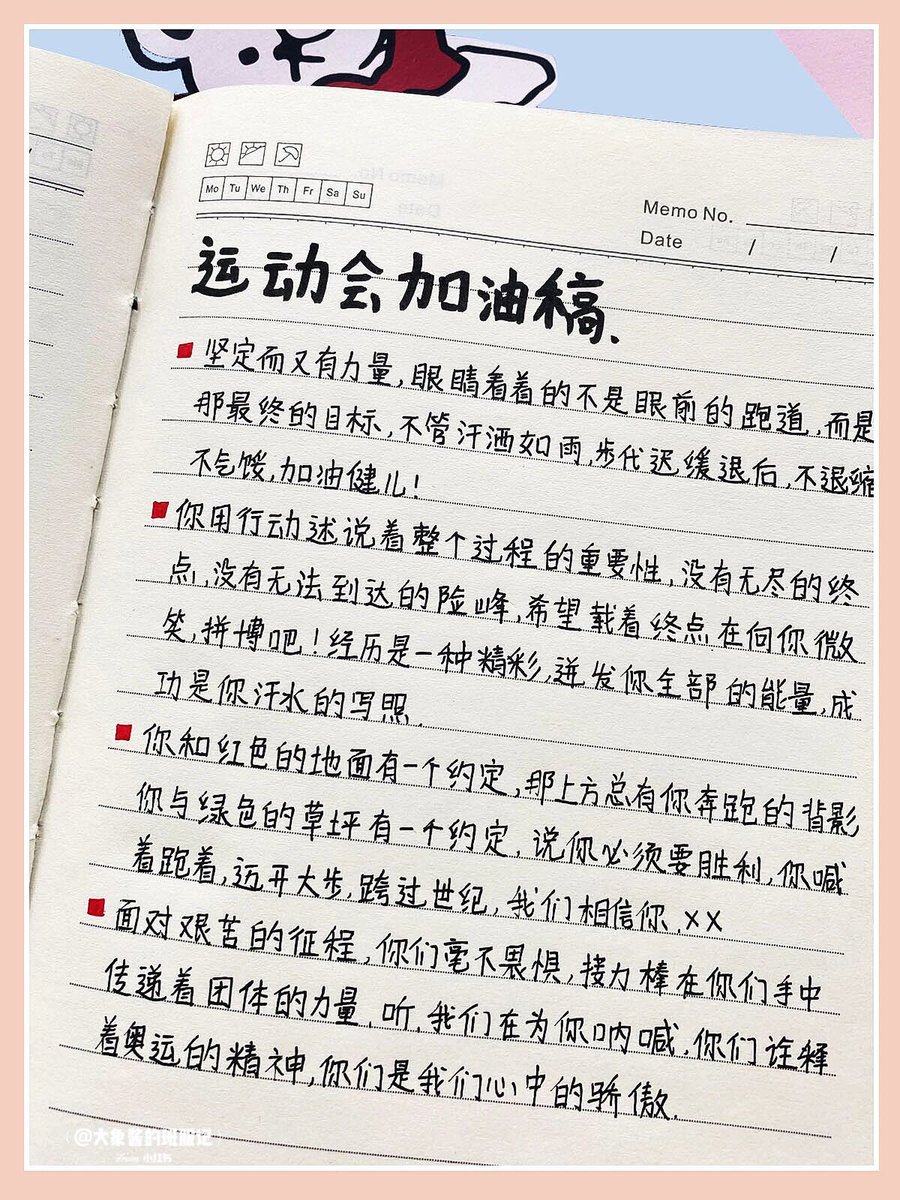 Mo Tu We Th Fr Sa Su
Memo No.
Date / /
运动会加油稿.
坚定而又有力量,眼睛看着的不是眼前的跑道,而是
那最终的目标,不管汗洒如雨,步代迟缓退后,不退缩
不气馁,加油健儿!
你用行动述说着整个过程的重要性,没有无尽的终
点,没有无法到达的险峰,希望载着终点在向你微
笑,拼博吧!经历是一种精彩,迸发你全部的能量,成
功是你汗水的写照.
你和红色的地面有一个约定,那上方总有你奔跑的背影
你与绿色的草坪有一个约定,说你必须要胜利,你喊
着跑着,迈开大步,跨过世纪,我们相信你.××
面对艰苦的征程,你们毫不畏惧,接力棒在你们手中
传递着团体的力量.听,我们在为你呐喊,你们诠释
着奥运的精神,你们是我们心中的骄傲.